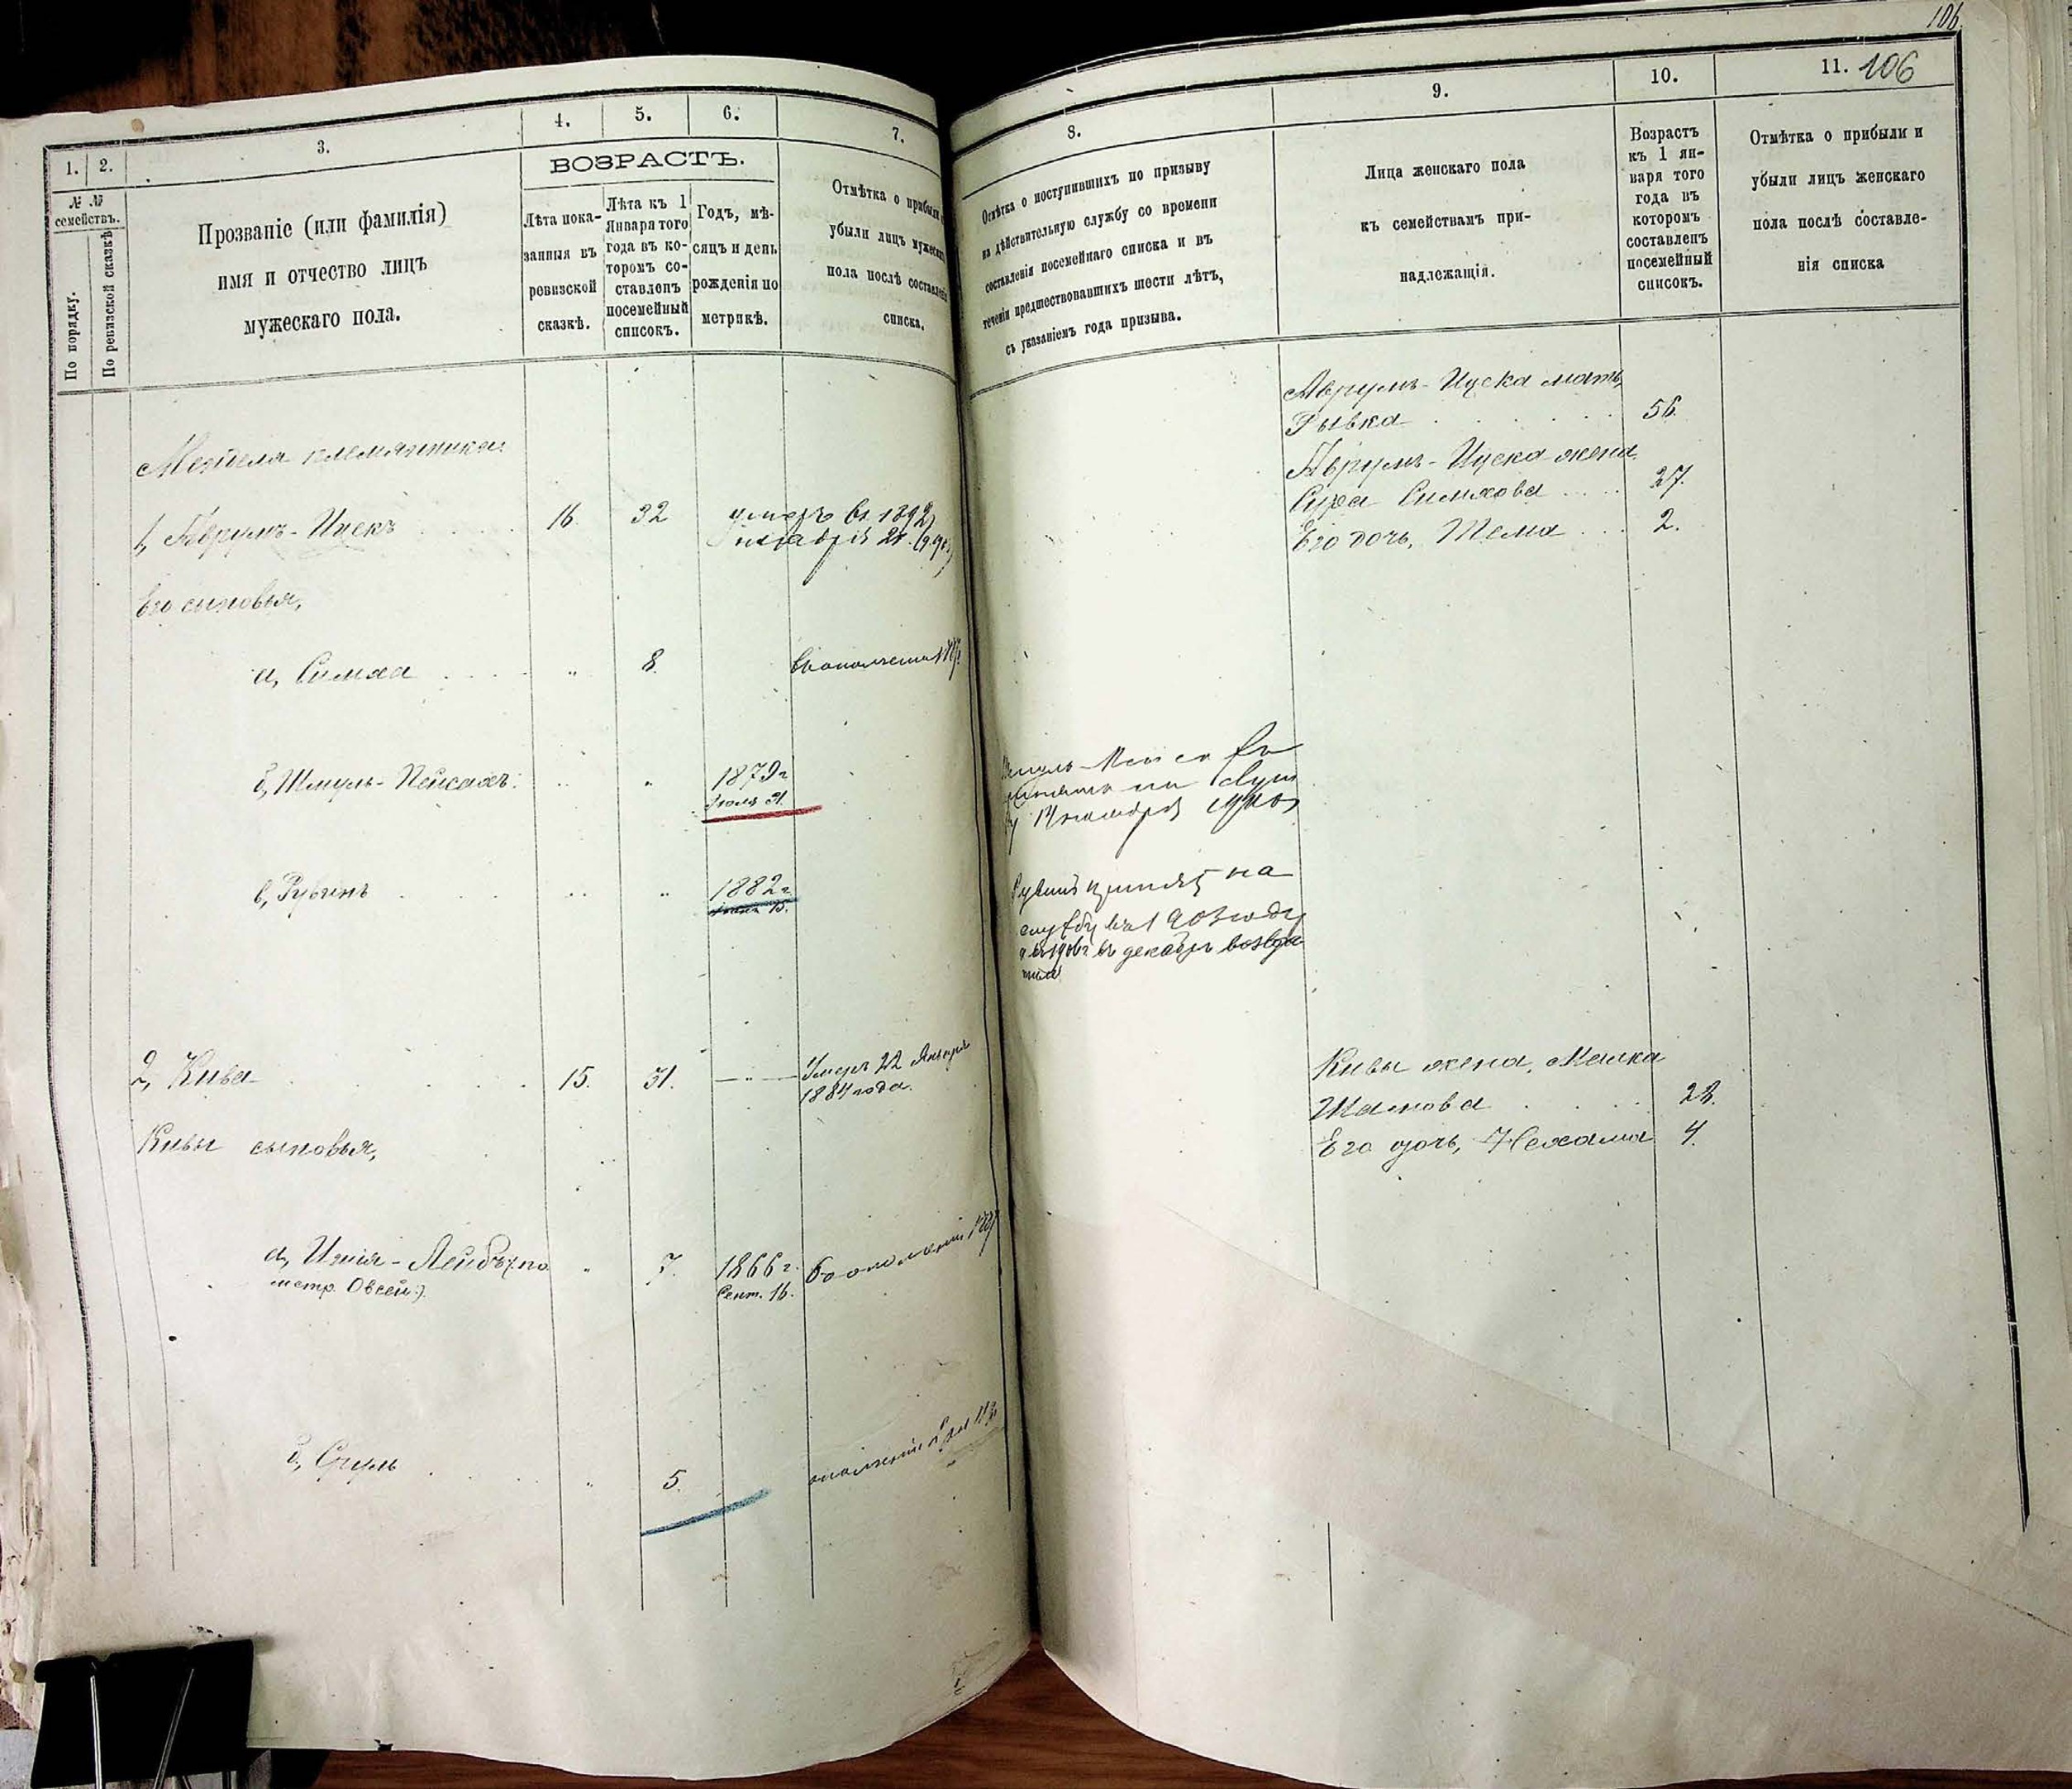 1.
2.
3.
4.
5.
6.
7.
№ №
семействъ.
По порядку.
По ревизской сказкѣ
Прозваніе (или фамилія)
имя и отчество лицъ
мужескаго пола.
ВОЗРАСТЪ.
Лѣта пока-
занныя въ
ревизской
сказкѣ.
Лѣта къ 1
Января того
года въ ко-
торомъ со-
ставленъ
посемейный
списокъ.
Годъ, мѣ-
сяцъ и день
рожденія по
метрикѣ.
Отмѣтка о прибыли
убыли лицъ мужескаго
пола послѣ составленія
списка.
племянники:
1, Аврумъ-Ицекъ 16. 32 умеръ въ 1892
Его сыновья,
а, Симха " 8.
б, Шмуль-Пейсахъ: " " 1879г
Іюля 21.
в, Рувинъ " " 1882г
2, Кива 15. 31. Умеръ 22 Января
1884 года.
Кивы сыновья,
а, Лейбъ (по " 7. 1866 г.
метр. Овсей:). Сент. 16.
б, Сруль " 5.
106.
8.
9.
10.
11. 106
Отмѣтка о поступившихъ по призыву
на дѣйствительную службу со времени
составленія посемейнаго списка и въ
теченіи предшествовавшихъ шести лѣтъ,
съ указаніемъ года призыва.
Лица женскаго пола
къ семействамъ при-
надлежащія.
Возрастъ
къ 1 ян-
варя того
года въ
котором­ъ
составленъ
посемейный
списокъ.
Отмѣтка о прибыли и
убыли лицъ женскаго
пола послѣ составле-
нія списка
Аврумъ-Ицека мать,
Рывка 56.
Аврумъ-Ицека жена
Сура Симхова 27.
Его дочь, Тема 2.
принятъ на
службу въ 1903 году
въ декабрѣ
Кивы жена, Малка
28.
Его дочь, Нехама 4.